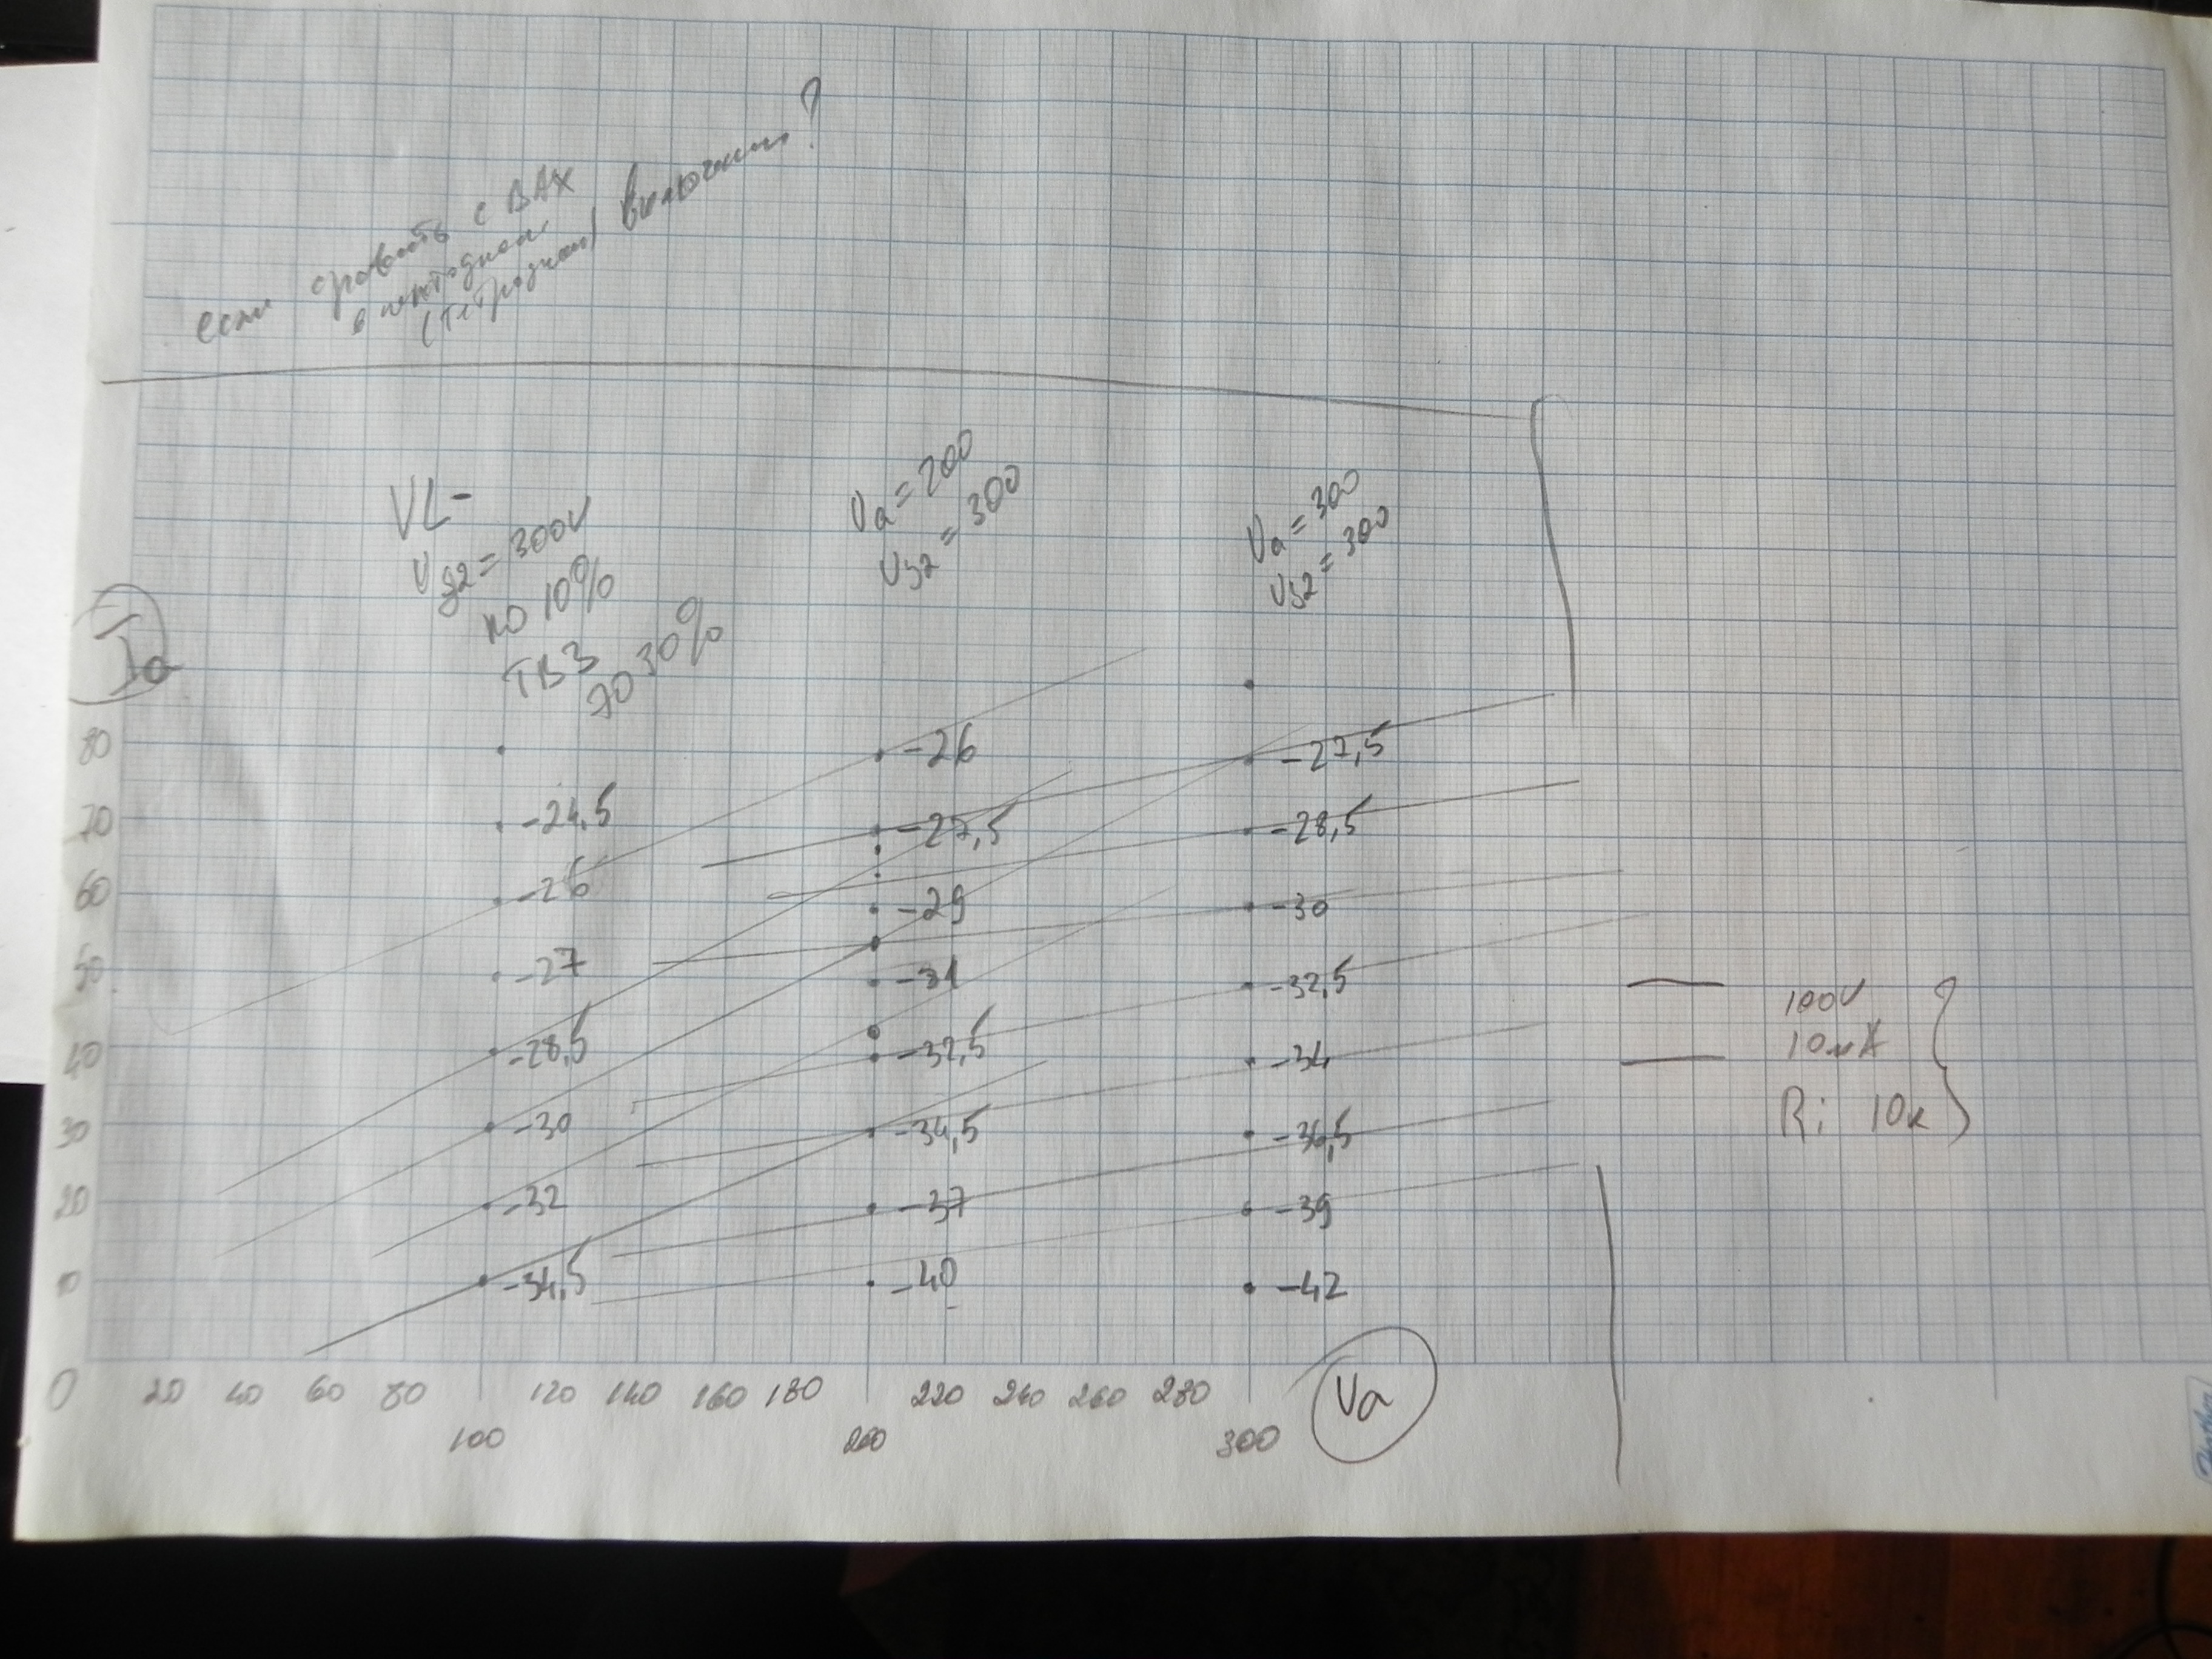 если сравнить с ВАХ
в пентодном
(тетродном) включении?
VL-
Vg2 = 300V
по 10%
ТВЗ
до 30%
Va = 200
Vg2 = 300
Va = 300
Vg2 = 300
Ia
80
-26
-27,5
70
-24,5
-27,5
-28,5
60
-26
-29
-30
50
-27
-31
-32,5
100V
40
-28,5
-32,5
-34
10мА
30
-30
-34,5
-36,5
Ri 10к
20
-32
-37
-39
10
-34,5
-40
-42
0 20 40 60 80 120 140 160 180 220 240 260 280
Va
100 200 300